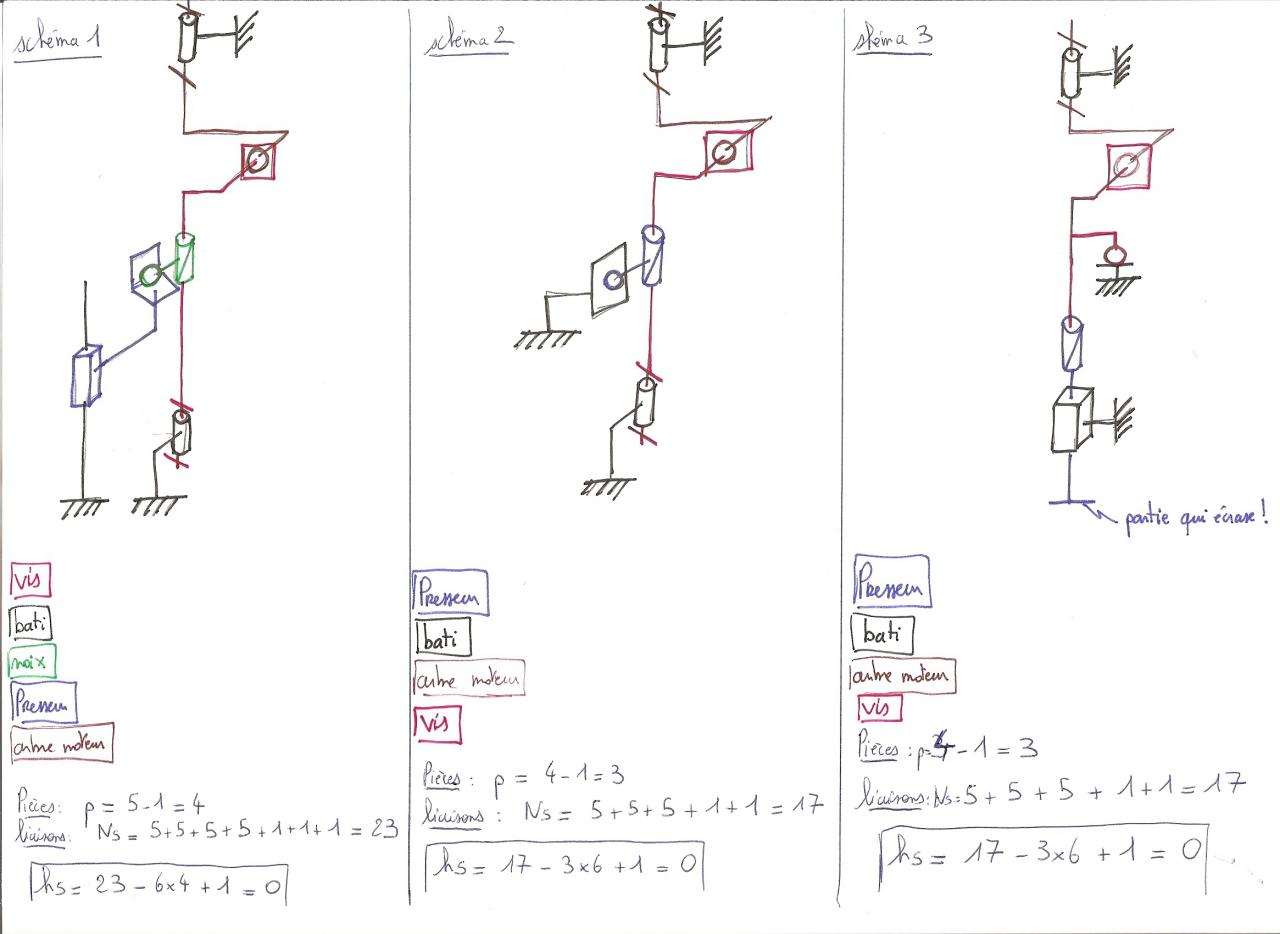 schéma 1
vis
bati
noix
Presseur
arbre moteur
Pièces: p = 5-1 = 4
liaisons: Ns = 5+5+5+5+1+1+1 = 23
hs = 23 - 6x4 + 1 = 0
schéma 2
Presseur
bati
arbre moteur
vis
Pièces: p = 4-1 = 3
liaisons : Ns = 5+5+5+1+1 = 17
hs = 17 - 3x6 + 1 = 0
shéma 3
partie qui écrase !
Presseur
bati
arbre moteur
vis
Pièces : p=4-1 = 3
liaisons: Ns=5+5+5+1+1 = 17
hs = 17 - 3x6 + 1 = 0